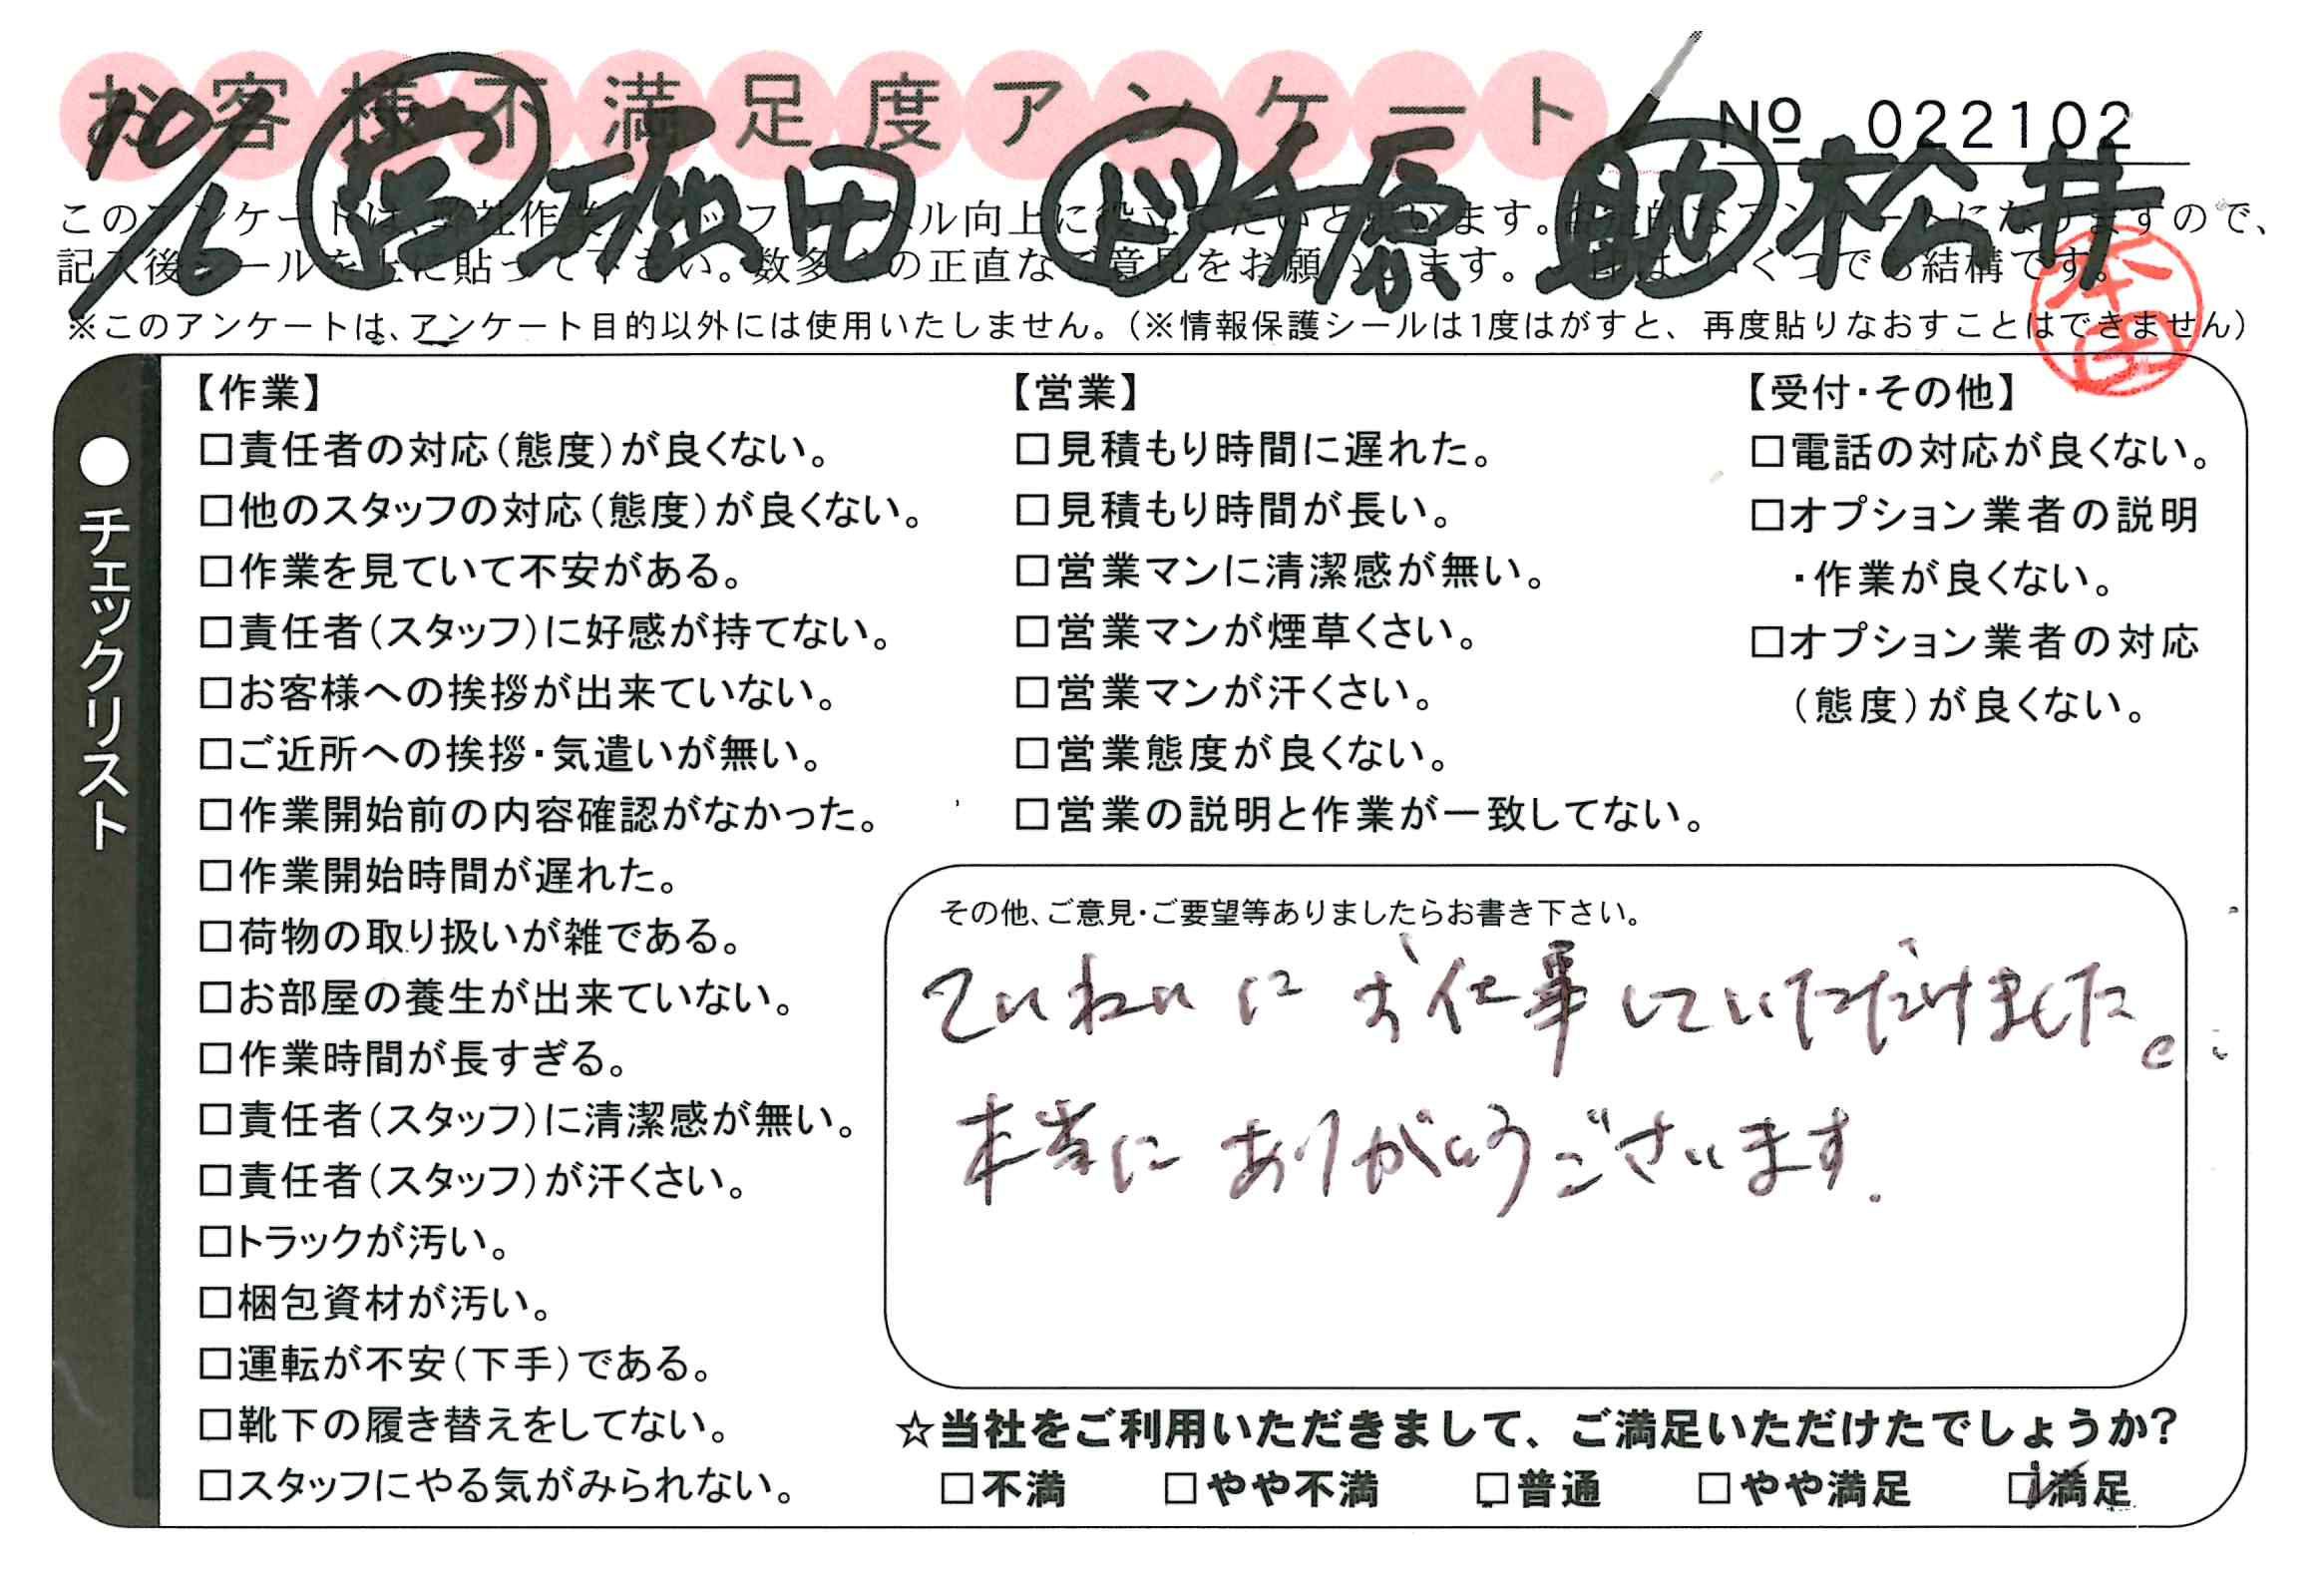 お客様不満足度アンケート
№ 022102
10/6 営 堀田 ド 千原 助 松井
記入後シールを上に貼って下さい。数多くの正直なご意見をお願いします。
※このアンケートは、アンケート目的以外には使用いたしません。（※情報保護シールは1度はがすと、再度貼りなおすことはできません）
● チェックリスト
【作業】
□責任者の対応（態度）が良くない。
□他のスタッフの対応（態度）が良くない。
□作業を見ていて不安がある。
□責任者（スタッフ）に好感が持てない。
□お客様への挨拶が出来ていない。
□ご近所への挨拶・気遣いが無い。
□作業開始前の内容確認がなかった。
□作業開始時間が遅れた。
□荷物の取り扱いが雑である。
□お部屋の養生が出来ていない。
□作業時間が長すぎる。
□責任者（スタッフ）に清潔感が無い。
□責任者（スタッフ）が汗くさい。
□トラックが汚い。
□梱包資材が汚い。
□運転が不安（下手）である。
□靴下の履き替えをしてない。
□スタッフにやる気がみられない。
【営業】
□見積もり時間に遅れた。
□見積もり時間が長い。
□営業マンに清潔感が無い。
□営業マンが煙草くさい。
□営業マンが汗くさい。
□営業態度が良くない。
□営業の説明と作業が一致してない。
【受付・その他】
□電話の対応が良くない。
□オプション業者の説明
・作業が良くない。
□オプション業者の対応
（態度）が良くない。
その他、ご意見・ご要望等ありましたらお書き下さい。
ていねいにお仕事していただけました。
本当にありがとうございます.
☆当社をご利用いただきまして、ご満足いただけたでしょうか?
□不満 □やや不満 □普通 □やや満足 ☑満足